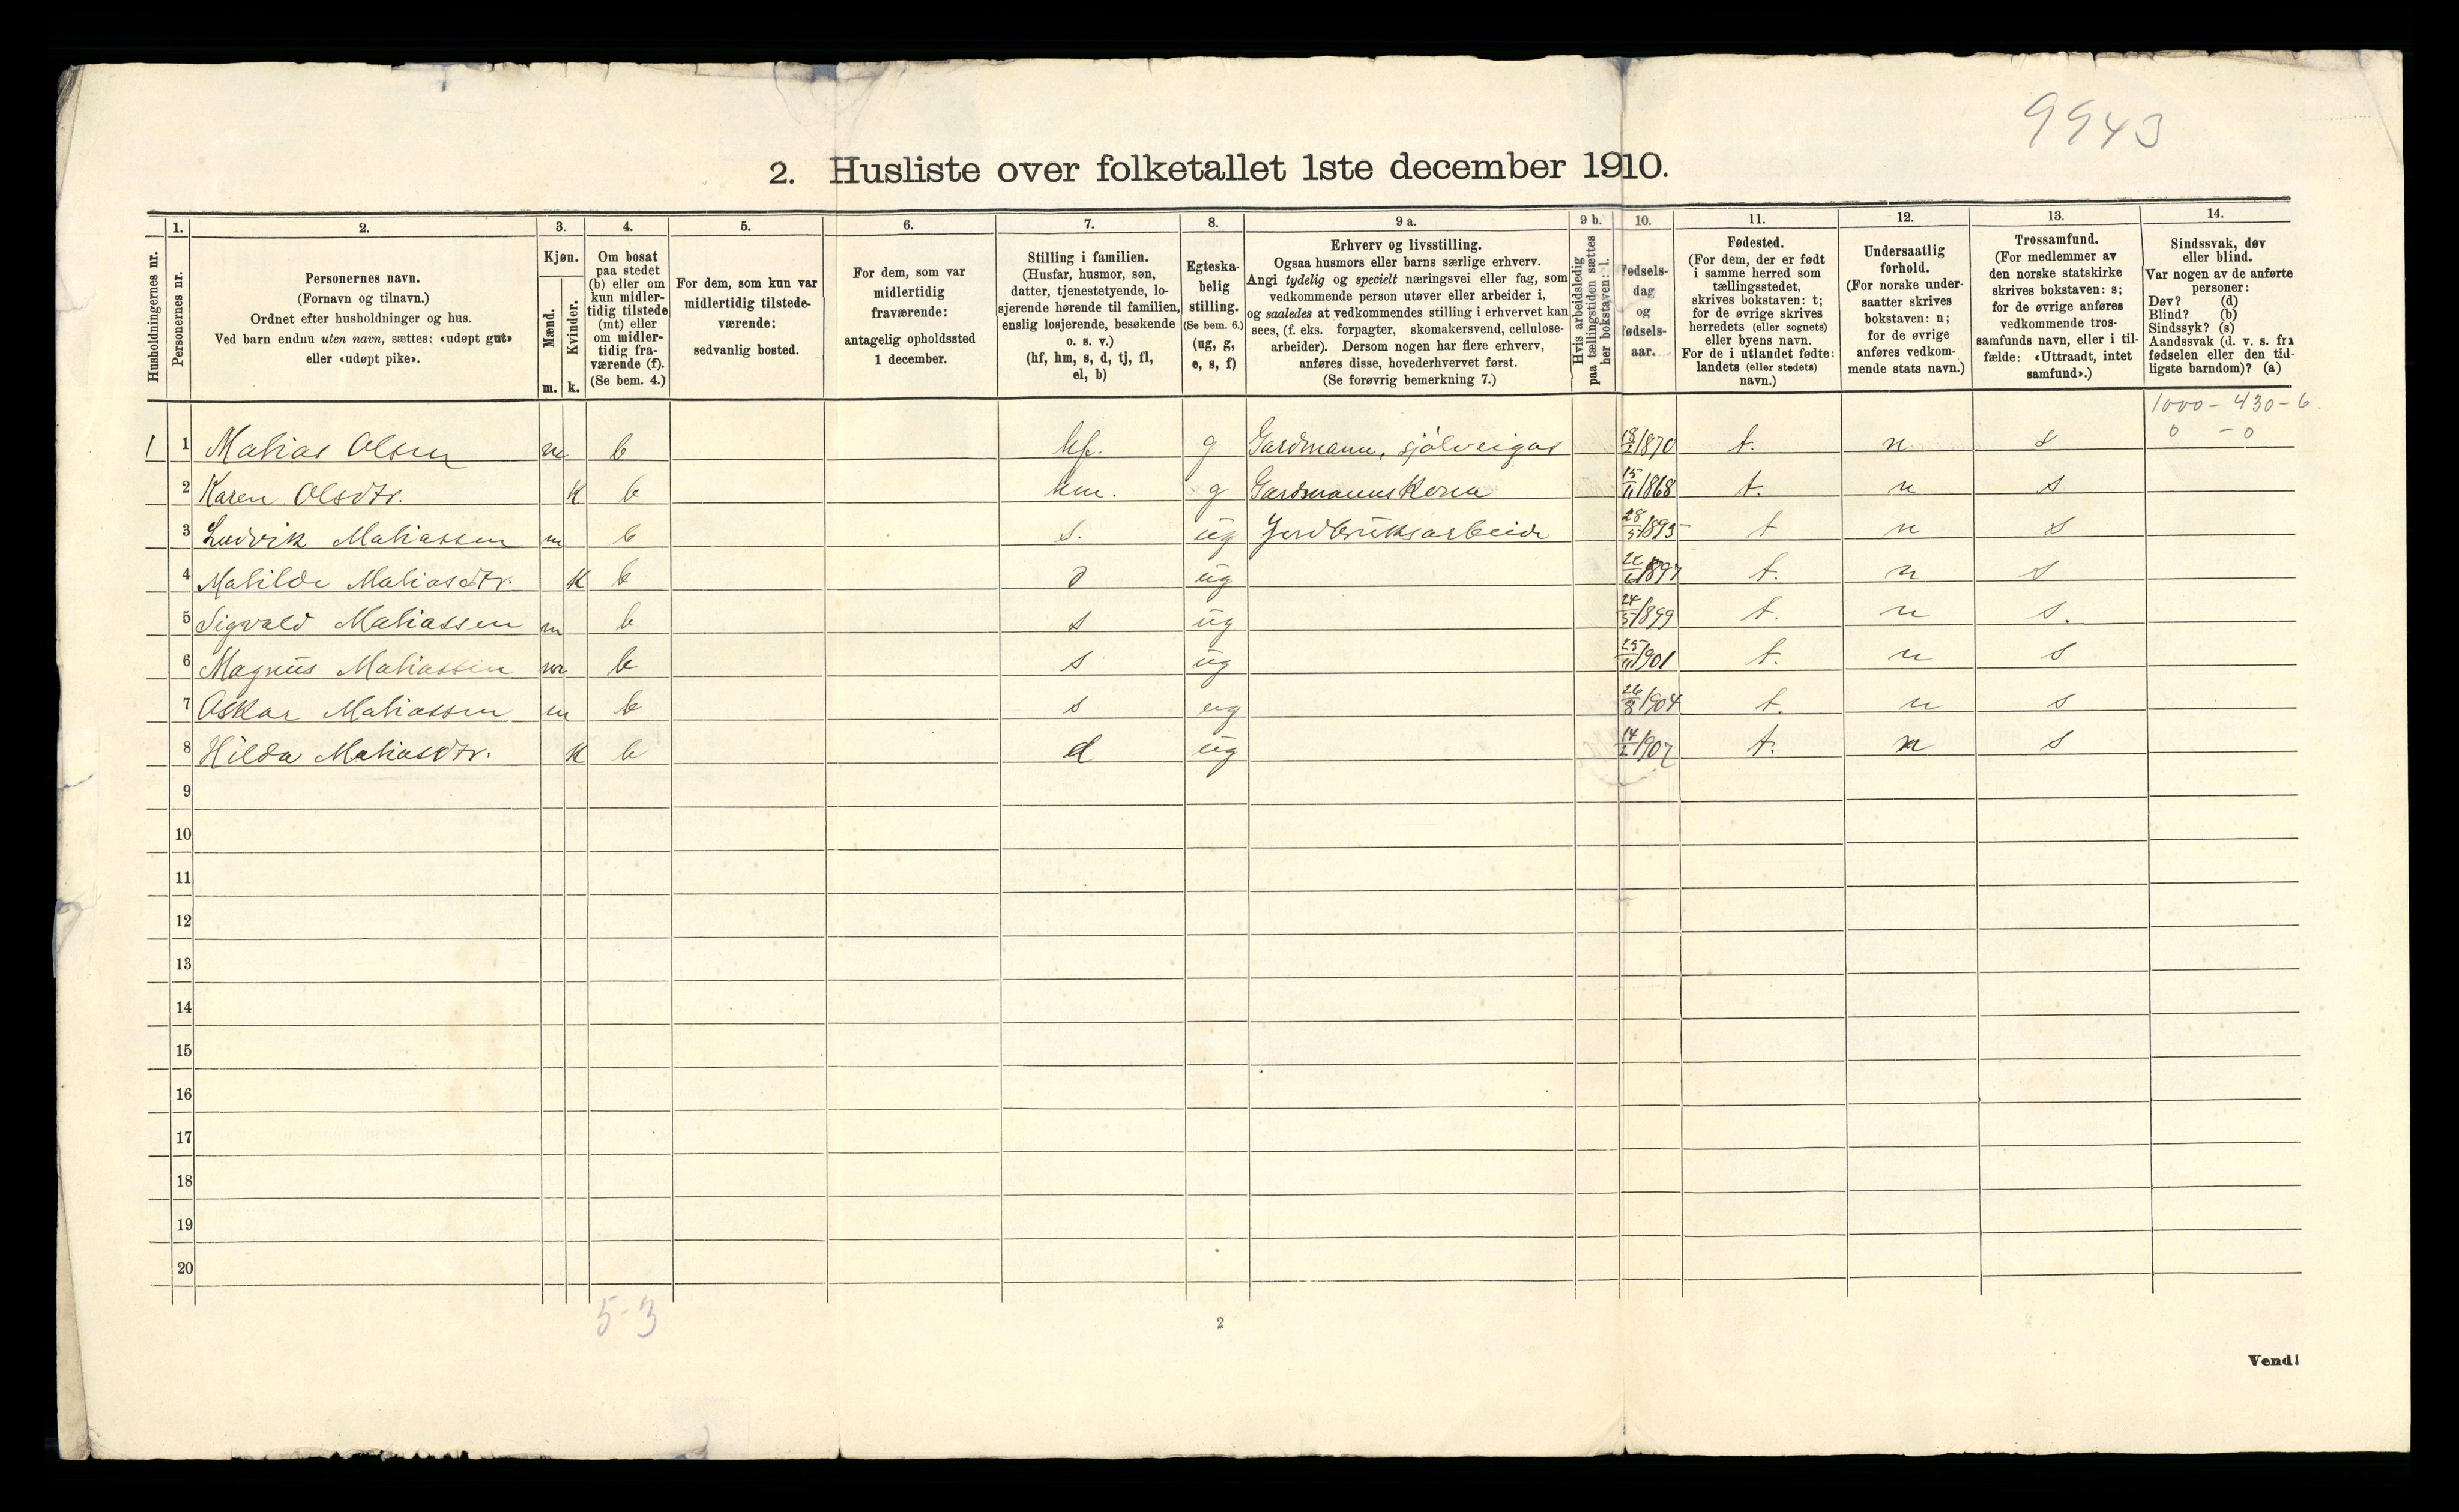 9943
2. Husliste over folketallet 1ste december 1910.
Husholdningernes nr.
1.
Personernes nr.
2.
Personernes navn.
(Fornavn og tilnavn.)
Ordnet efter husholdninger og hus.
Ved barn endnu uten navn, sættes: «udøpt gut»
eller «udøpt pike».
3.
Kjøn.
Mænd.
m.
Kvinder.
k.
4.
Om bosat
paa stedet
(b) eller om
kun midler-
tidig tilstede
(mt) eller
om midler-
tidig fra-
værende (f).
(Se bem. 4.)
5.
For dem, som kun var
midlertidig tilstede-
værende:
sedvanlig bosted.
6.
For dem, som var
midlertidig
fraværende:
antagelig opholdssted
1 december.
7.
Stilling i familien.
(Husfar, husmor, søn,
datter, tjenestetyende, lo-
sjerende hørende til familien,
enslig losjerende, besøkende
o. s. v.)
(hf, hm, s, d, tj, fl,
el, b)
8.
Egteska-
belig
stilling.
(Se bem. 6.)
(ug, g,
e, s, f)
9 a.
Erhverv og livsstilling.
Ogsaa husmors eller barns særlige erhverv.
Angi tydelig og specielt næringsvei eller fag, som
vedkommende person utøver eller arbeider i,
og saaledes at vedkommendes stilling i erhvervet kan
sees, (f. eks. forpagter, skomakersvend, cellulose-
arbeider). Dersom nogen har flere erhverv,
anføres disse, hovederhvervet først.
(Se forøvrig bemerkning 7.)
9 b.
Hvis arbeidsledig
paa tællingstiden sættes
her bokstaven: l.
10.
Fødsels-
dag
og
fødsels-
aar.
11.
Fødested.
(For dem, der er født
i samme herred som
tællingsstedet,
skrives bokstaven: t;
for de øvrige skrives
herredets (eller sognets)
eller byens navn.
For de i utlandet fødte:
landets (eller stedets)
navn.)
12.
Undersaatlig
forhold.
(For norske under-
saatter skrives
bokstaven: n;
for de øvrige
anføres vedkom-
mende stats navn.)
13.
Trossamfund.
(For medlemmer av
den norske statskirke
skrives bokstaven: s;
for de øvrige anføres
vedkommende tros-
samfunds navn, eller i til-
fælde: «Uttraadt, intet
samfund».)
14.
Sindssvak, døv
eller blind.
Var nogen av de anførte
personer:
Døv? (d)
Blind? (b)
Sindssyk? (s)
Aandssvak (d. v. s. fra
fødselen eller den tid-
ligste barndom)? (a)
1000 - 430 - 6
0 - 0
1 1 Matias Olsen m b hf. g Gardmann, sjølveigar 18/2 1870 t. n s
2 Karen Olsdtr. k b hm. g Gardmannskona 15/11 1868 t. n s
3 Ludvik Matiassen m b s. ug Jordbruksarbeide 28/5 1895 t n s
4 Matilde Matiasdtr. k b d ug /6 1897 t. n s
5 Sigvald Matiassen m b s ug 24/5 1899 t. n s.
6 Magnus Matiassen m b s ug 25/11 1901 t. n s
7 Askar Matiassen m b s ug 26/8 1904 t. n s
8 Hilda Matiasdtr. k b d ug 14/2 1907 t. n s
9
10
11
12
13
14
15
16
17
18
19
20
5-3
2
Vend!